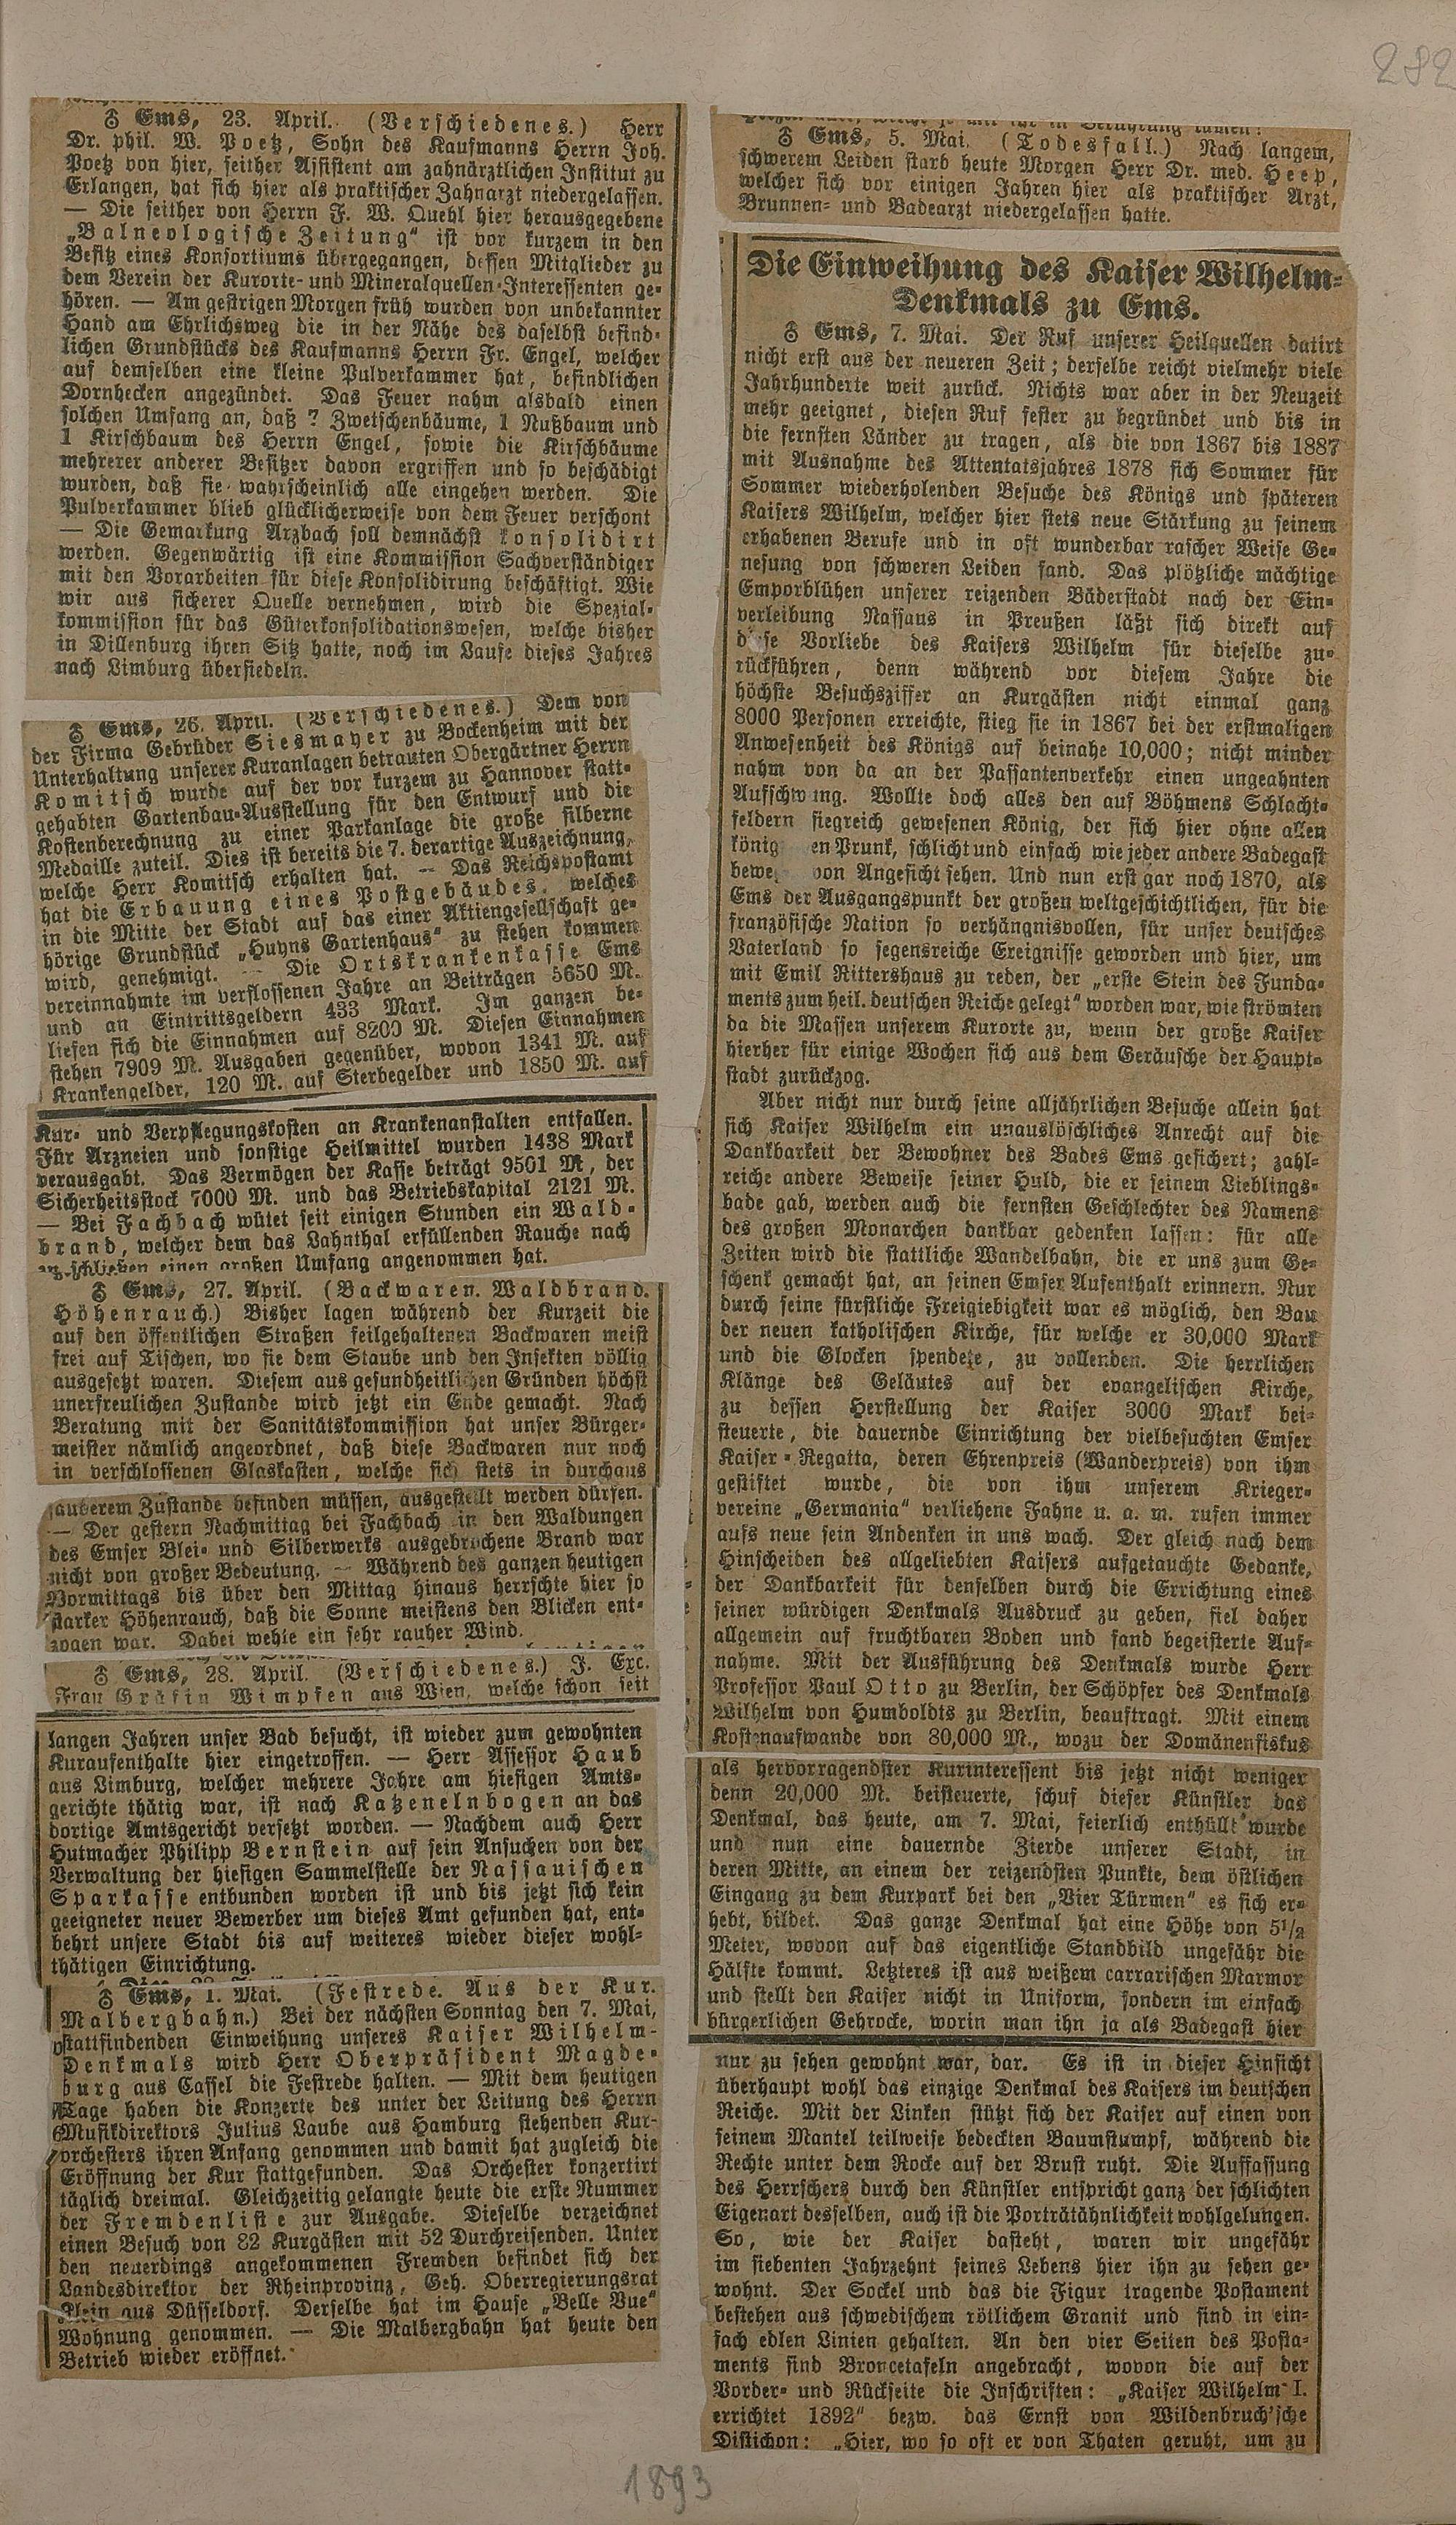 282
♁ Ems, 23. April. (Verschiedenes.) Herr
Dr. phil. W. Poetz, Sohn des Kaufmanns Herrn Joh.
Poetz von hier, seither Assistent am zahnärztlichen Institut zu
Erlangen, hat sich hier als praktischer Zahnarzt niedergelassen.
— Die seither von Herrn F. W. Quehl hier herausgegebene
„Balneologische Zeitung“ ist vor kurzem in den
Besitz eines Konsortiums übergegangen, dessen Mitglieder zu
dem Verein der Kurorte- und Mineralquellen-Interessenten ge-
hören. — Am gestrigen Morgen früh wurden von unbekannter
Hand am Ehrlichsweg die in der Nähe des daselbst befind-
lichen Grundstücks des Kaufmanns Herrn Fr. Engel, welcher
auf demselben eine kleine Pulverkammer hat, befindlichen
Dornhecken angezündet. Das Feuer nahm alsbald einen
solchen Umfang an, daß 7 Zwetschenbäume, 1 Nußbaum und
1 Kirschbaum des Herrn Engel, sowie die Kirschbäume
mehrerer anderer Besitzer davon ergriffen und so beschädigt
wurden, daß sie wahrscheinlich alle eingehen werden. Die
Pulverkammer blieb glücklicherweise von dem Feuer verschont
— Die Gemarkung Arzbach soll demnächst konsolidirt
werden. Gegenwärtig ist eine Kommission Sachverständiger
mit den Vorarbeiten für diese Konsolidirung beschäftigt. Wie
wir aus sicherer Quelle vernehmen, wird die Spezial-
kommission für das Güterkonsolidationswesen, welche bisher
in Dillenburg ihren Sitz hatte, noch im Laufe dieses Jahres
nach Limburg übersiedeln.
♁ Ems, 26. April. (Verschiedenes.) Dem von
der Firma Gebrüder Siesmayer zu Bockenheim mit der
Unterhaltung unserer Kuranlagen betrauten Obergärtner Herrn
Komitsch wurde auf der vor kurzem zu Hannover statt-
gehabten Gartenbau-Ausstellung für den Entwurf und die
Kostenberechnung zu einer Parkanlage die große silberne
Medaille zuteil. Dies ist bereits die 7. derartige Auszeichnung,
welche Herr Komitsch erhalten hat. — Das Reichspostamt
hat die Erbauung eines Postgebäudes, welches
in die Mitte der Stadt auf das einer Aktiengesellschaft ge-
hörige Grundstück „Huyns Gartenhaus“ zu stehen kommen
wird, genehmigt. — Die Ortskrankenkasse Ems
vereinnahmte im verflossenen Jahre an Beiträgen 5650 M.
und an Eintrittsgeldern 433 Mark. Im ganzen be-
liefen sich die Einnahmen auf 8200 M. Diesen Einnahmen
stehen 7909 M. Ausgaben gegenüber, wovon 1341 M. auf
Krankengelder, 120 M. auf Sterbegelder und 1850 M. auf
Kur- und Verpflegungskosten an Krankenanstalten entfallen.
Für Arzneien und sonstige Heilmittel wurden 1438 Mark
verausgabt. Das Vermögen der Kasse beträgt 9501 M, der
Sicherheitsstock 7000 M. und das Betriebskapital 2121 M.
— Bei Fachbach wütet seit einigen Stunden ein Wald-
brand, welcher dem das Lahnthal erfüllenden Rauche nach
zu schließen einen großen Umfang angenommen hat.
♁ Ems, 27. April. (Backwaren. Waldbrand.
Höhenrauch.) Bisher lagen während der Kurzeit die
auf den öffentlichen Straßen feilgehaltenen Backwaren meist
frei auf Tischen, wo sie dem Staube und den Insekten völlig
ausgesetzt waren. Diesem aus gesundheitlichen Gründen höchst
unerfreulichen Zustande wird jetzt ein Ende gemacht. Nach
Beratung mit der Sanitätskommission hat unser Bürger-
meister nämlich angeordnet, daß diese Backwaren nur noch
in verschlossenen Glaskasten, welche sich stets in durchaus
sauberem Zustande befinden müssen, ausgestellt werden dürfen.
— Der gestern Nachmittag bei Fachbach in den Waldungen
des Emser Blei- und Silberwerks ausgebrochene Brand war
nicht von großer Bedeutung. — Während des ganzen heutigen
Vormittags bis über den Mittag hinaus herrschte hier so
starker Höhenrauch, daß die Sonne meistens den Blicken ent-
zogen war. Dabei wehte ein sehr rauher Wind.
♁ Ems, 28. April. (Verschiedenes.) J. Exc.
Frau Gräfin Wimpfen aus Wien, welche schon seit
langen Jahren unser Bad besucht, ist wieder zum gewohnten
Kuraufenthalte hier eingetroffen. — Herr Assessor Haub
aus Limburg, welcher mehrere Jahre am hiesigen Amts-
gerichte thätig war, ist nach Katzenelnbogen an das
dortige Amtsgericht versetzt worden. — Nachdem auch Herr
Hutmacher Philipp Bernstein auf sein Ansuchen von der
Verwaltung der hiesigen Sammelstelle der Nassauischen
Sparkasse entbunden worden ist und bis jetzt sich kein
geeigneter neuer Bewerber um dieses Amt gefunden hat, ent-
behrt unsere Stadt bis auf weiteres wieder dieser wohl-
thätigen Einrichtung.
♁ Ems, 1. Mai. (Festrede. Aus der Kur.
Malbergbahn.) Bei der nächsten Sonntag den 7. Mai,
stattfindenden Einweihung unseres Kaiser Wilhelm-
Denkmals wird Herr Oberpräsident Magde-
burg aus Cassel die Festrede halten. — Mit dem heutigen
Tage haben die Konzerte des unter der Leitung des Herrn
Musikdirektors Julius Laube aus Hamburg stehenden Kur-
orchesters ihren Anfang genommen und damit hat zugleich die
Eröffnung der Kur stattgefunden. Das Orchester konzertirt
täglich dreimal. Gleichzeitig gelangte heute die erste Nummer
der Fremdenliste zur Ausgabe. Dieselbe verzeichnet
einen Besuch von 82 Kurgästen mit 52 Durchreisenden. Unter
den neuerdings angekommenen Fremden befindet sich der
Landesdirektor der Rheinprovinz, Geh. Oberregierungsrat
Klein aus Düsseldorf. Derselbe hat im Hause „Belle Vue“
Wohnung genommen. — Die Malbergbahn hat heute den
Betrieb wieder eröffnet.
♁ Ems, 5. Mai. (Todesfall.) Nach langem,
schwerem Leiden starb heute Morgen Herr Dr. med. Heep,
welcher sich vor einigen Jahren hier als praktischer Arzt,
Brunnen- und Badearzt niedergelassen hatte.
Die Einweihung des Kaiser Wilhelm-
Denkmals zu Ems.
♁ Ems, 7. Mai. Der Ruf unserer Heilquellen datirt
nicht erst aus der neueren Zeit; derselbe reicht vielmehr viele
Jahrhunderte weit zurück. Nichts war aber in der Neuzeit
mehr geeignet, diesen Ruf fester zu begründet und bis in
die fernsten Länder zu tragen, als die von 1867 bis 1887
mit Ausnahme des Attentatsjahres 1878 sich Sommer für
Sommer wiederholenden Besuche des Königs und späteren
Kaisers Wilhelm, welcher hier stets neue Stärkung zu seinem
erhabenen Berufe und in oft wunderbar rascher Weise Ge-
nesung von schweren Leiden fand. Das plötzliche mächtige
Emporblühen unserer reizenden Bäderstadt nach der Ein-
verleibung Nassaus in Preußen läßt sich direkt auf
d se Vorliebe des Kaisers Wilhelm für dieselbe zu-
rückführen, denn während vor diesem Jahre die
höchste Besuchsziffer an Kurgästen nicht einmal ganz
8000 Personen erreichte, stieg sie in 1867 bei der erstmaligen
Anwesenheit des Königs auf beinahe 10,000; nicht minder
nahm von da an der Passantenverkehr einen ungeahnten
Aufschwung. Wollte doch alles den auf Böhmens Schlacht-
feldern siegreich gewesenen König, der sich hier ohne allen
könig en Prunk, schlicht und einfach wie jeder andere Badegast
bewe von Angesicht sehen. Und nun erst gar noch 1870, als
Ems der Ausgangspunkt der großen weltgeschichtlichen, für die
französische Nation so verhängnisvollen, für unser deutsches
Vaterland so segensreiche Ereignisse geworden und hier, um
mit Emil Rittershaus zu reden, der „erste Stein des Funda-
ments zum heil. deutschen Reiche gelegt“ worden war, wie strömten
da die Massen unserem Kurorte zu, wenn der große Kaiser
hierher für einige Wochen sich aus dem Geräusche der Haupt-
stadt zurückzog.
Aber nicht nur durch seine alljährlichen Besuche allein hat
sich Kaiser Wilhelm ein unauslöschliches Anrecht auf die
Dankbarkeit der Bewohner des Bades Ems gesichert; zahl-
reiche andere Beweise seiner Huld, die er seinem Lieblings-
bade gab, werden auch die fernsten Geschlechter des Namens
des großen Monarchen dankbar gedenken lassen: für alle
Zeiten wird die stattliche Wandelbahn, die er uns zum Ge-
schenk gemacht hat, an seinen Emser Aufenthalt erinnern. Nur
durch seine fürstliche Freigiebigkeit war es möglich, den Bau
der neuen katholischen Kirche, für welche er 30,000 Mark
und die Glocken spendete, zu vollenden. Die herrlichen
Klänge des Geläutes auf der evangelischen Kirche,
zu dessen Herstellung der Kaiser 3000 Mark bei-
steuerte, die dauernde Einrichtung der vielbesuchten Emser
Kaiser-Regatta, deren Ehrenpreis (Wanderpreis) von ihm
gestiftet wurde, die von ihm unserem Krieger-
vereine „Germania“ verliehene Fahne u. a. m. rufen immer
aufs neue sein Andenken in uns wach. Der gleich nach dem
Hinscheiden des allgeliebten Kaisers aufgetauchte Gedanke,
der Dankbarkeit für denselben durch die Errichtung eines
seiner würdigen Denkmals Ausdruck zu geben, fiel daher
allgemein auf fruchtbaren Boden und fand begeisterte Auf-
nahme. Mit der Ausführung des Denkmals wurde Herr
Professor Paul Otto zu Berlin, der Schöpfer des Denkmals
Wilhelm von Humboldts zu Berlin, beauftragt. Mit einem
Kostenaufwande von 30,000 M., wozu der Domänenfiskus
als hervorragendster Kurinteressent bis jetzt nicht weniger
denn 20,000 M. beisteuerte, schuf dieser Künstler das
Denkmal, das heute, am 7. Mai, feierlich enthüllt wurde
und nun eine dauernde Zierde unserer Stadt, in
deren Mitte, an einem der reizendsten Punkte, dem östlichen
Eingang zu dem Kurpark bei den „Vier Türmen“ es sich er-
hebt, bildet. Das ganze Denkmal hat eine Höhe von 5½
Meter, wovon auf das eigentliche Standbild ungefähr die
Hälfte kommt. Letzteres ist aus weißem carrarischen Marmor
und stellt den Kaiser nicht in Uniform, sondern im einfach
bürgerlichen Gehrocke, worin man ihn ja als Badegast hier
nur zu sehen gewohnt war, dar. Es ist in dieser Hinsicht
überhaupt wohl das einzige Denkmal des Kaisers im deutschen
Reiche. Mit der Linken stützt sich der Kaiser auf einen von
seinem Mantel teilweise bedeckten Baumstumpf, während die
Rechte unter dem Rocke auf der Brust ruht. Die Auffassung
des Herrschers durch den Künstler entspricht ganz der schlichten
Eigenart desselben, auch ist die Porträtähnlichkeit wohlgelungen.
So, wie der Kaiser dasteht, waren wir ungefähr
im siebenten Jahrzehnt seines Lebens hier ihn zu sehen ge-
wohnt. Der Sockel und das die Figur tragende Postament
bestehen aus schwedischem rötlichem Granit und sind in ein-
fach edlen Linien gehalten. An den vier Seiten des Posta-
ments sind Broncetafeln angebracht, wovon die auf der
Vorder- und Rückseite die Inschriften: „Kaiser Wilhelm I.
errichtet 1892“ bezw. das Ernst von Wildenbruch'sche
Distichon: „Hier, wo so oft er von Thaten geruht, um zu
1893